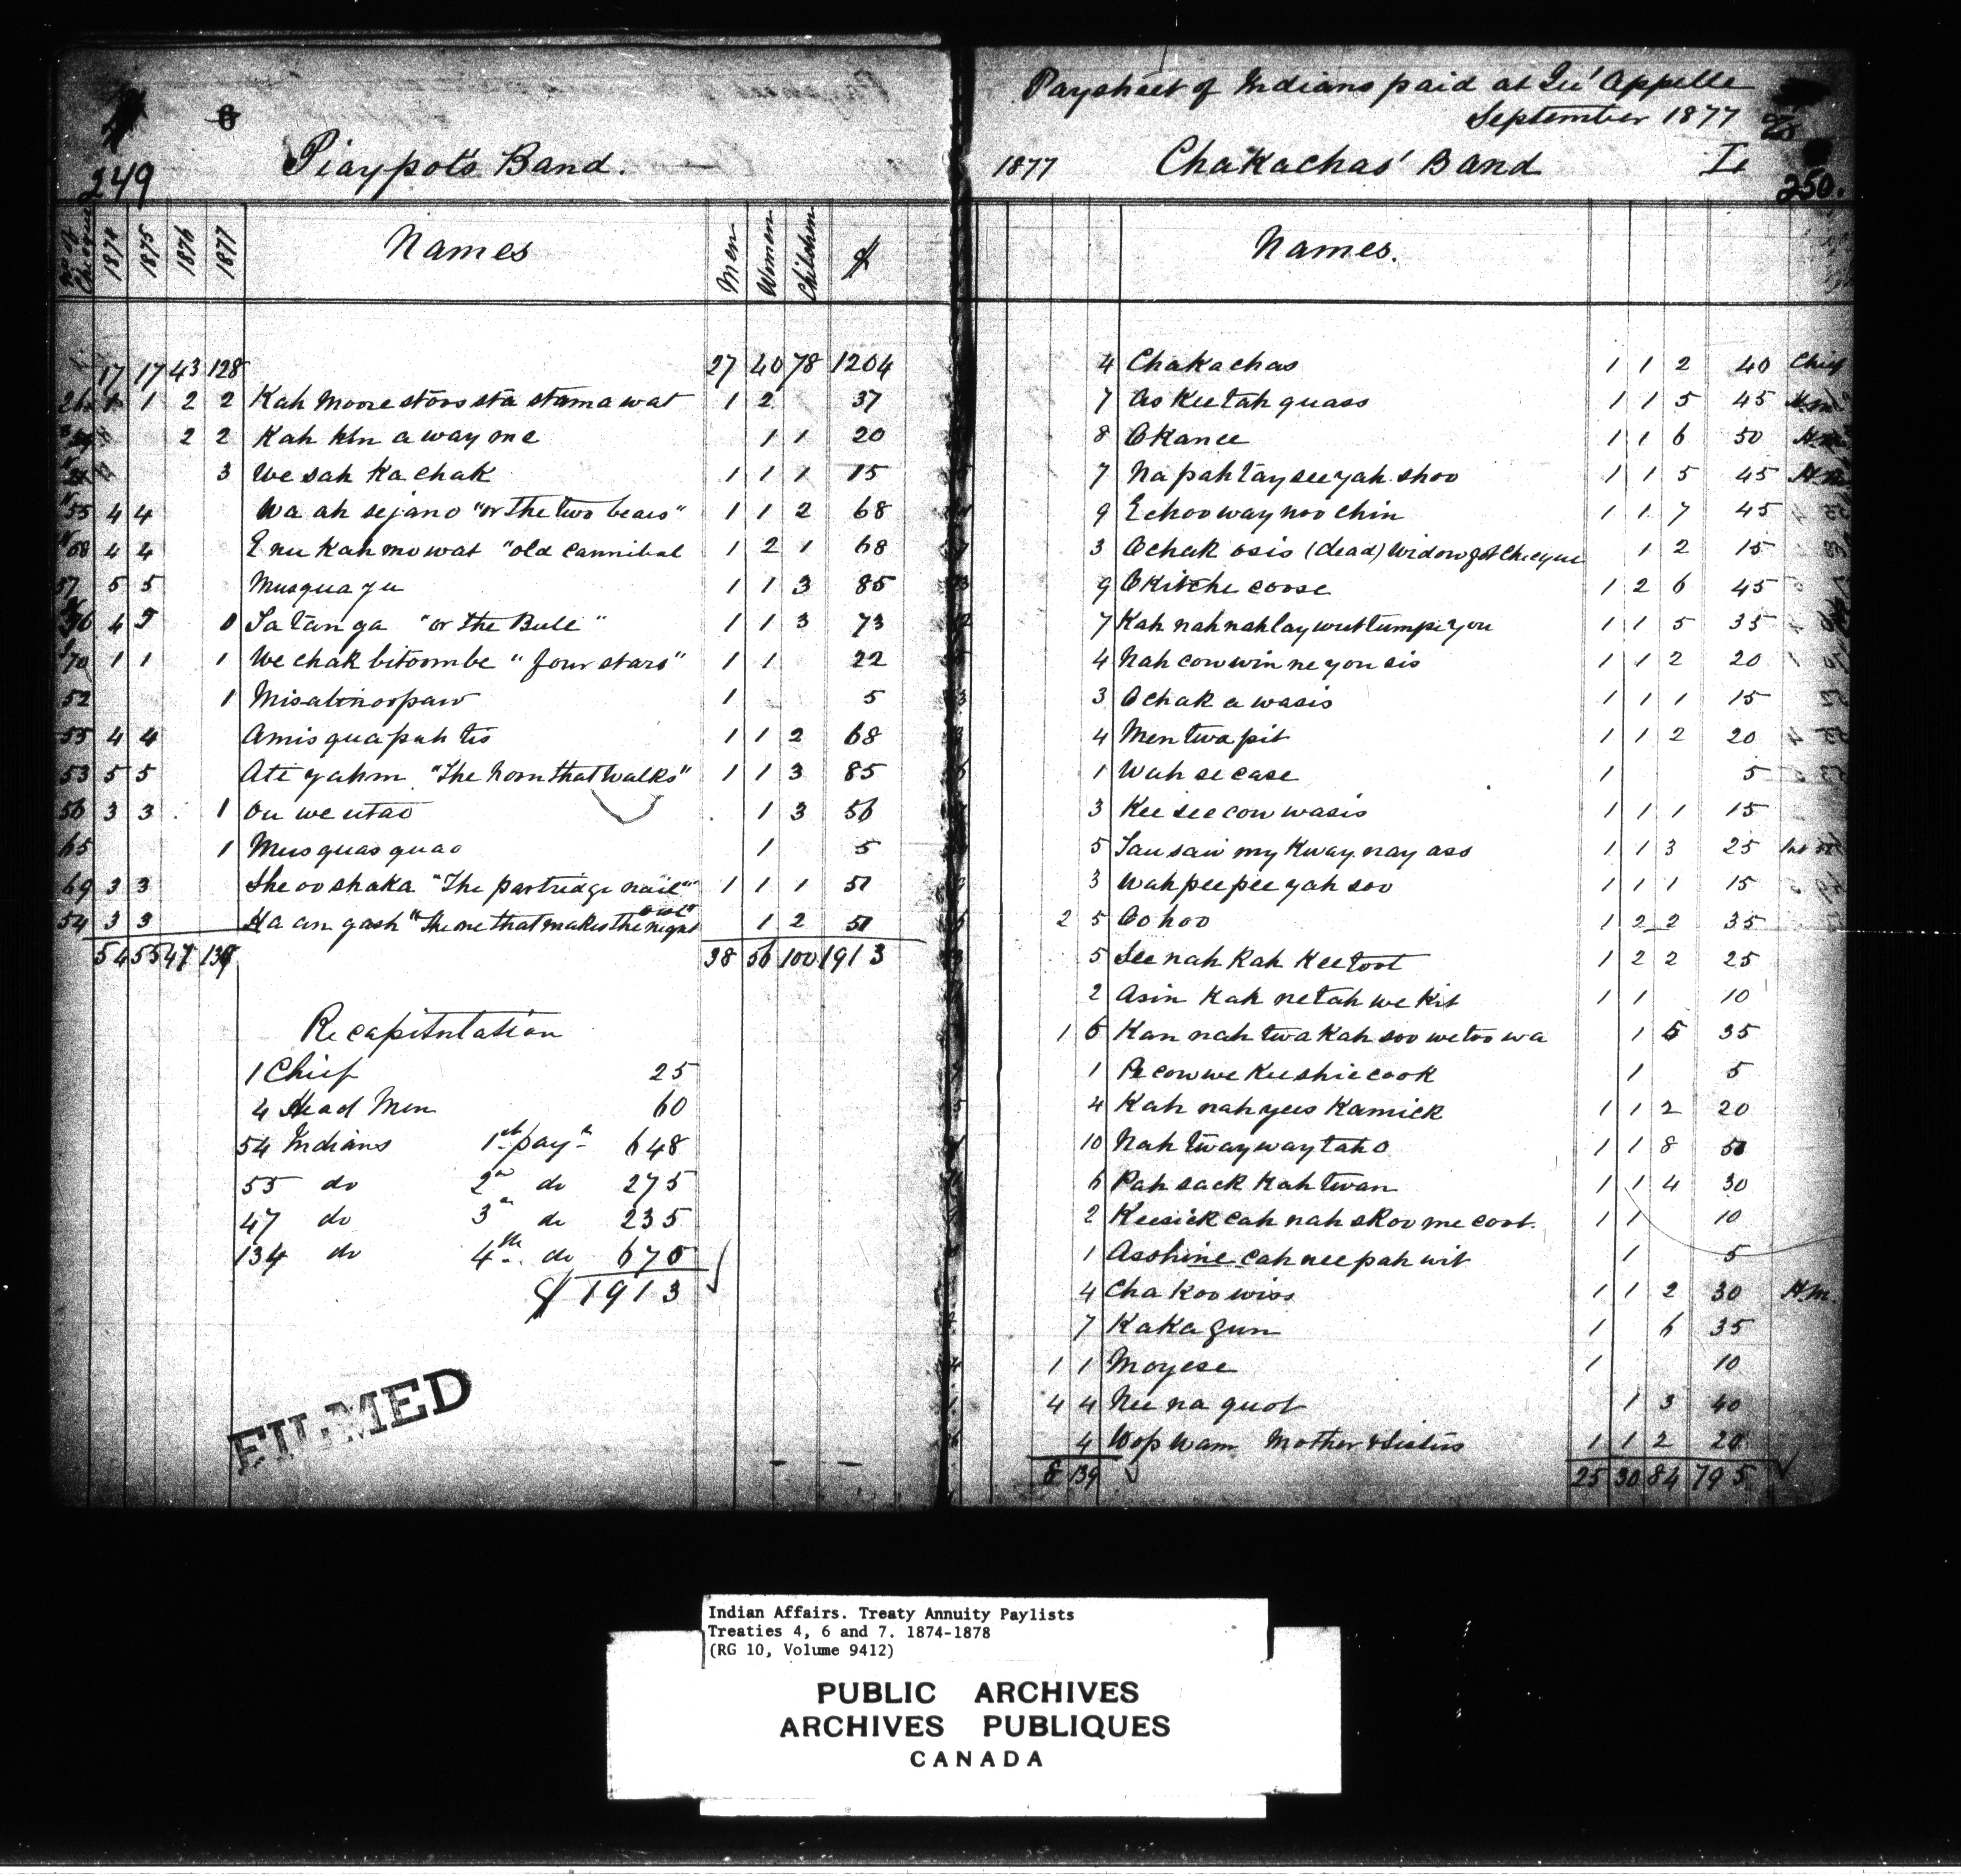 249
Piaypots Band.
No of Cheque 1874 1875 1876 1877 Names Men Women Children $
17 17 43 128 27 40 78 1204
1 2 2 Kah Moore stoos sta stama wat 1 2 37
2 2 Kah kin a way me 1 1 20
3 We sah Ka chak 1 1 1 15
55 4 4 Wa ah sejano "or The two bears" 1 1 2 68
68 4 4 Enu Kah mowat "old Cannibal 1 2 1 68
57 5 5 Musqua gu 1 1 3 85
56 4 5 0 Ta tan ga "or the Bull" 1 1 3 73
70 1 1 1 We chak bitoombe "four stars" 1 1 22
52 1 Misatinoopaw 1 5
55 4 4 Amis qua pah tis 1 1 2 68
53 5 5 Ate yahm "The horn that walks" 1 1 3 85
56 3 3 1 Ou we utao 1 3 56
65 1 Musquas quao 1 5
69 3 3 She oo shaka "The partridge nail" 1 1 1 51
54 3 3 Ha an gash "The one that makes the night owl" 1 2 51
54 55 47 134 38 56 100 1913
Recapitulation
1 Chief 25
4 Head Men 60
54 Indians 1st payt 648
55 do 2nd do 275
47 do 3rd do 235
134 do 4th do 670
$1913
FILMED
Paysheet of Indians paid at Qu'Appelle
September 1877
1877 Chakachas' Band
250.
Names.
4 Chakachas 1 1 2 40 Chief
7 As Kee tah quass 1 1 5 45 H.m.
8 Okanee 1 1 6 50 H.m.
7 Na pah tay see yah shoo 1 1 5 45 H.m.
9 Echoo way noo chin 1 1 7 45
3 Ochak osis (dead) Widow got Cheque 1 2 15
9 Okitche coose 1 2 6 45
7 Kah nah nah tay wut tumpe you 1 1 5 35
4 Nah cow win ne you sis 1 1 2 20
3 Ochak a wasis 1 1 1 15
4 Men twa pit 1 1 2 20
1 Wah se case 1 5
3 Kee see cow wasis 1 1 1 15
5 Tau saw my Kway nay ass 1 1 3 25
3 Wah pee pee yah soo 1 1 1 15
2 5 Oo hoo 1 2 2 35
5 See nah Kah Kee toot 1 2 2 25
2 Asin Kah ne tah we Kit 1 1 10
1 6 Kan nah twa Kah soo we too wa 1 5 35
1 Pe cow we Kee shie cook 1 5
4 Kah nah yees Kamick 1 1 2 20
10 Nah tway way tah o 1 1 8 50
6 Pah sack Kah twan 1 1 4 30
2 Keesick cah nah skoo me coot. 1 1 10
1 Asshine cah nee pah wit 1 5
4 Cha Koo wiss 1 1 2 30 H.m.
7 Kaka gun 1 6 35
1 1 Moyese 1 10
4 4 Nee na quot 1 3 40
4 Wop wam Mother & Sisters 1 1 2 20
8 139 25 30 84 795
Indian Affairs. Treaty Annuity Paylists
Treaties 4, 6 and 7. 1874-1878
(RG 10, Volume 9412)
PUBLIC ARCHIVES
ARCHIVES PUBLIQUES
CANADA